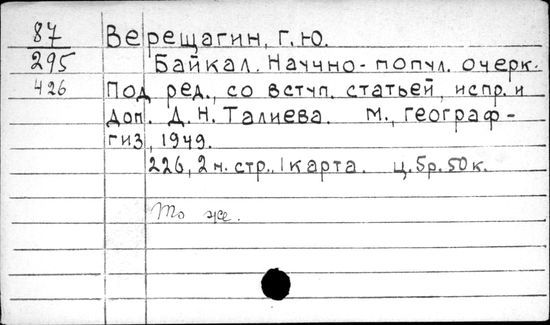 87 Верещагин, Г. Ю.
295 Байкал. Научно-попул. очерк.
426 Под ред., со вступ. статьей, испр. и
доп. Д. Н. Талиева. М., Географ-
гиз, 1949.
226, 2 н. стр., 1 карта. ц. 5р. 50к.
То же.